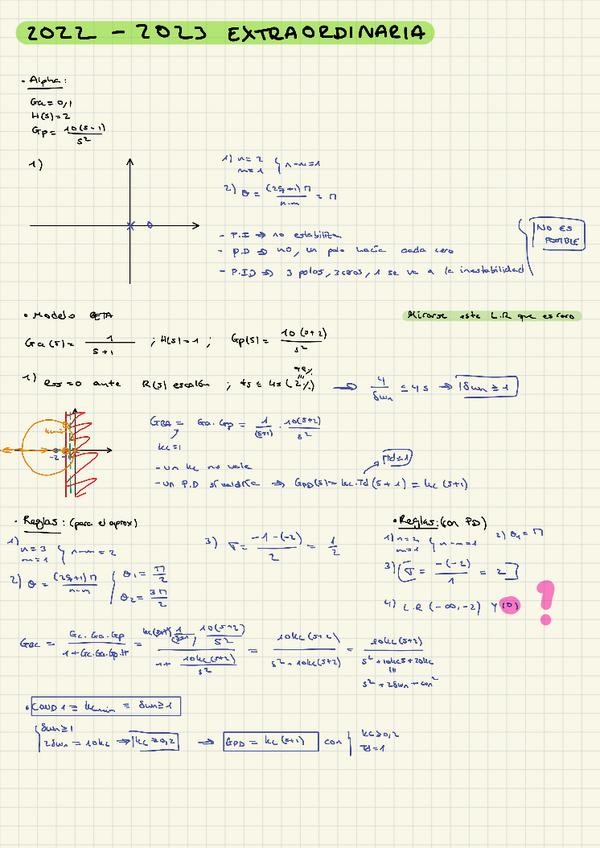 2022 - 2023 EXTRAORDINARIA
• Alpha:
Ga = 0,1
H(s) = 2
Gp = 10(s-1) / s²
1)
1) n = 2
m = 1 } n-m = 1
2) θ = (2q+1)π / n-m = π
- P.I ⇒ no estabiliza
- P.D ⇒ no, un polo hacia cada cero
- P.I.D ⇒ 3 polos, 2 ceros, 1 se va a la inestabilidad
NO ES
POSIBLE
• Modelo BETA
Mirarse este L.R que es raro
Ga(s) = 1 / s+1 ; H(s) = 1 ; Gp(s) = 10(s+2) / s²
1) Ess = 0 ante R(s) escalón ; ts ≤ 4s (2%) → 4 / δwn ≤ 4s → |δwn ≥ 1|
98%
GBA = Ga·Gp = 1 / (s+1) · 10(s+2) / s²
kc=1
- un kc no vale
- un P.D si valdría ⇒ GPD(s) = kc·Td(s+1) = kc(s+1)
Td=1
-2
• Reglas: (para el aprox)
1) n = 3
m = 1 } n-m = 2
2) θ = (2q+1)π / n-m { θ1 = π/2
θ2 = 3π/2
3) σ = -1-(-2) / 2 = 1/2
• Reglas: (con PD)
1) n = 2
m = 1 } n-m = 1
2) θ1 = π
3) σ = -(-2) / 1 = 2
4) L.R (-∞, -2) y (0) !
GBC = Gc·Ga·Gp / 1+Gc·Ga·Gp·H = kc(s+1) 1/(s+1) 10(s+2)/s² / 1+ 10kc(s+2)/s² = 10kc(s+2) / s²+10kc(s+2) = 10kc(s+2) / s²+10kcs+20kc
s²+2δwn+wn²
• COND 1 = kcmin = δwn ≥ 1
{ δwn ≥ 1
2δwn = 10kc ⇒ |kc ≥ 0,2| → GPD = kc(s+1) con { kc ≥ 0,2
Td = 1